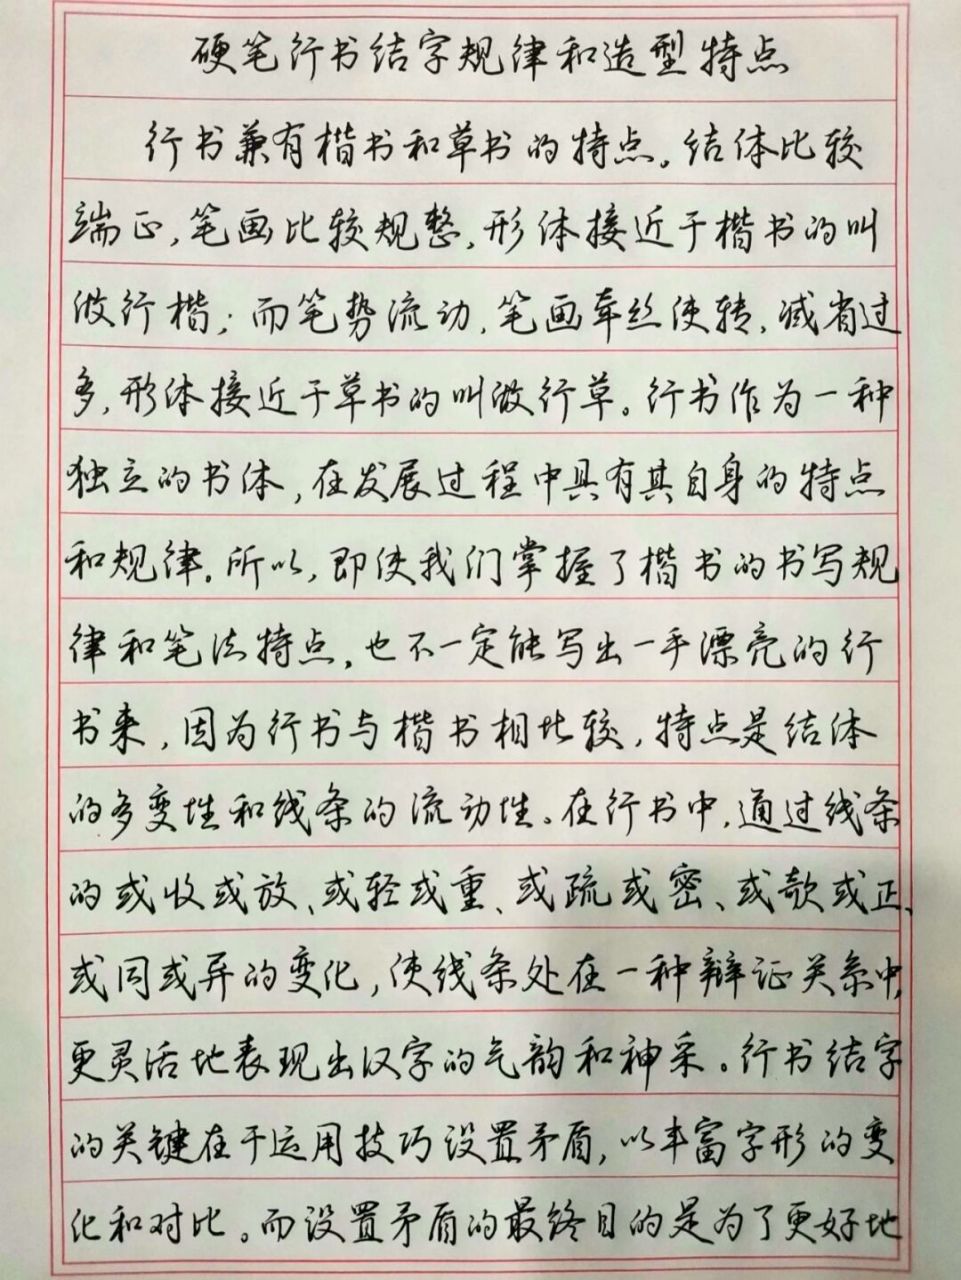 硬笔行书结字规律和造型特点
行书兼有楷书和草书的特点。结体比较
端正,笔画比较规整,形体接近于楷书的叫
做行楷;而笔势流动,笔画牵丝使转,减省过
多,形体接近于草书的叫做行草。行书作为一种
独立的书体,在发展过程中具有其自身的特点
和规律。所以,即使我们掌握了楷书的书写规
律和笔法特点,也不一定能写出一手漂亮的行
书来,因为行书与楷书相比较,特点是结体
的多变性和线条的流动性。在行书中,通过线条
的或收或放、或轻或重、或疏或密、或欹或正、
或同或异的变化,使线条处在一种辩证关系中,
更灵活地表现出汉字的气韵和神采。行书结字
的关键在于运用技巧设置矛盾,以丰富字形的变
化和对比。而设置矛盾的最终目的是为了更好地